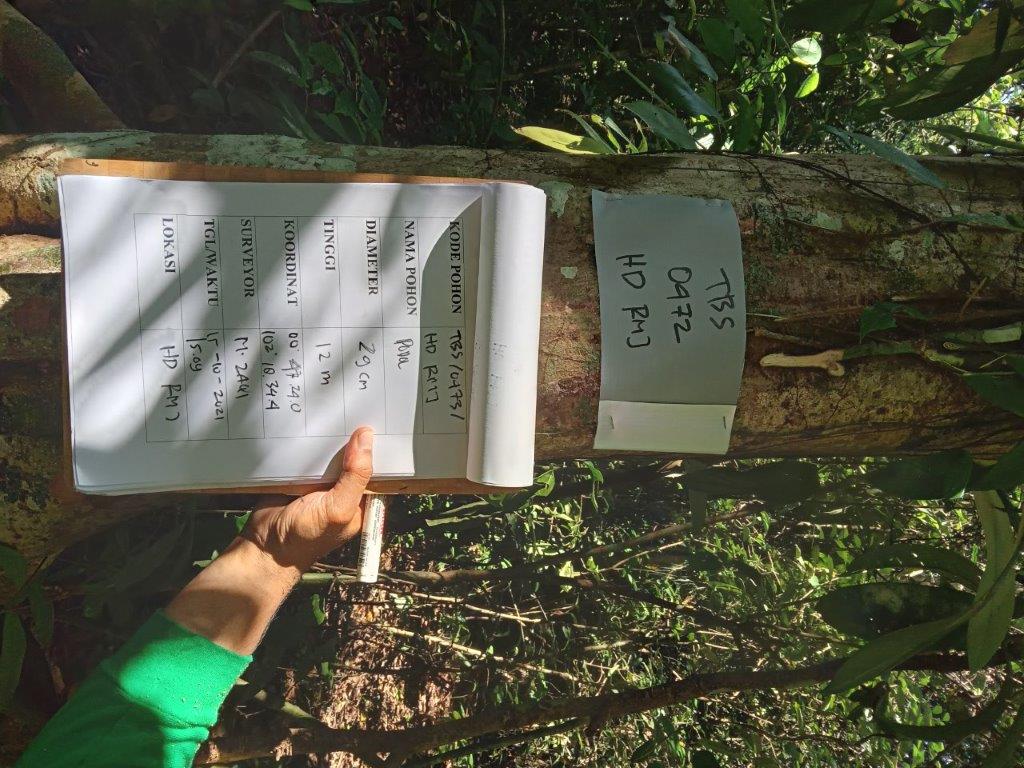 TBS
0472
HD RMJ
KODE POHON TBS/0473/
HD RMJ
NAMA POHON
DIAMETER 29 cm
TINGGI 12 m
KOORDINAT 00° 47 24.0
102° 18.344
SURVEYOR M. ZAKI
TGL/WAKTU 15-10-2021
15.09
LOKASI HD RMJ